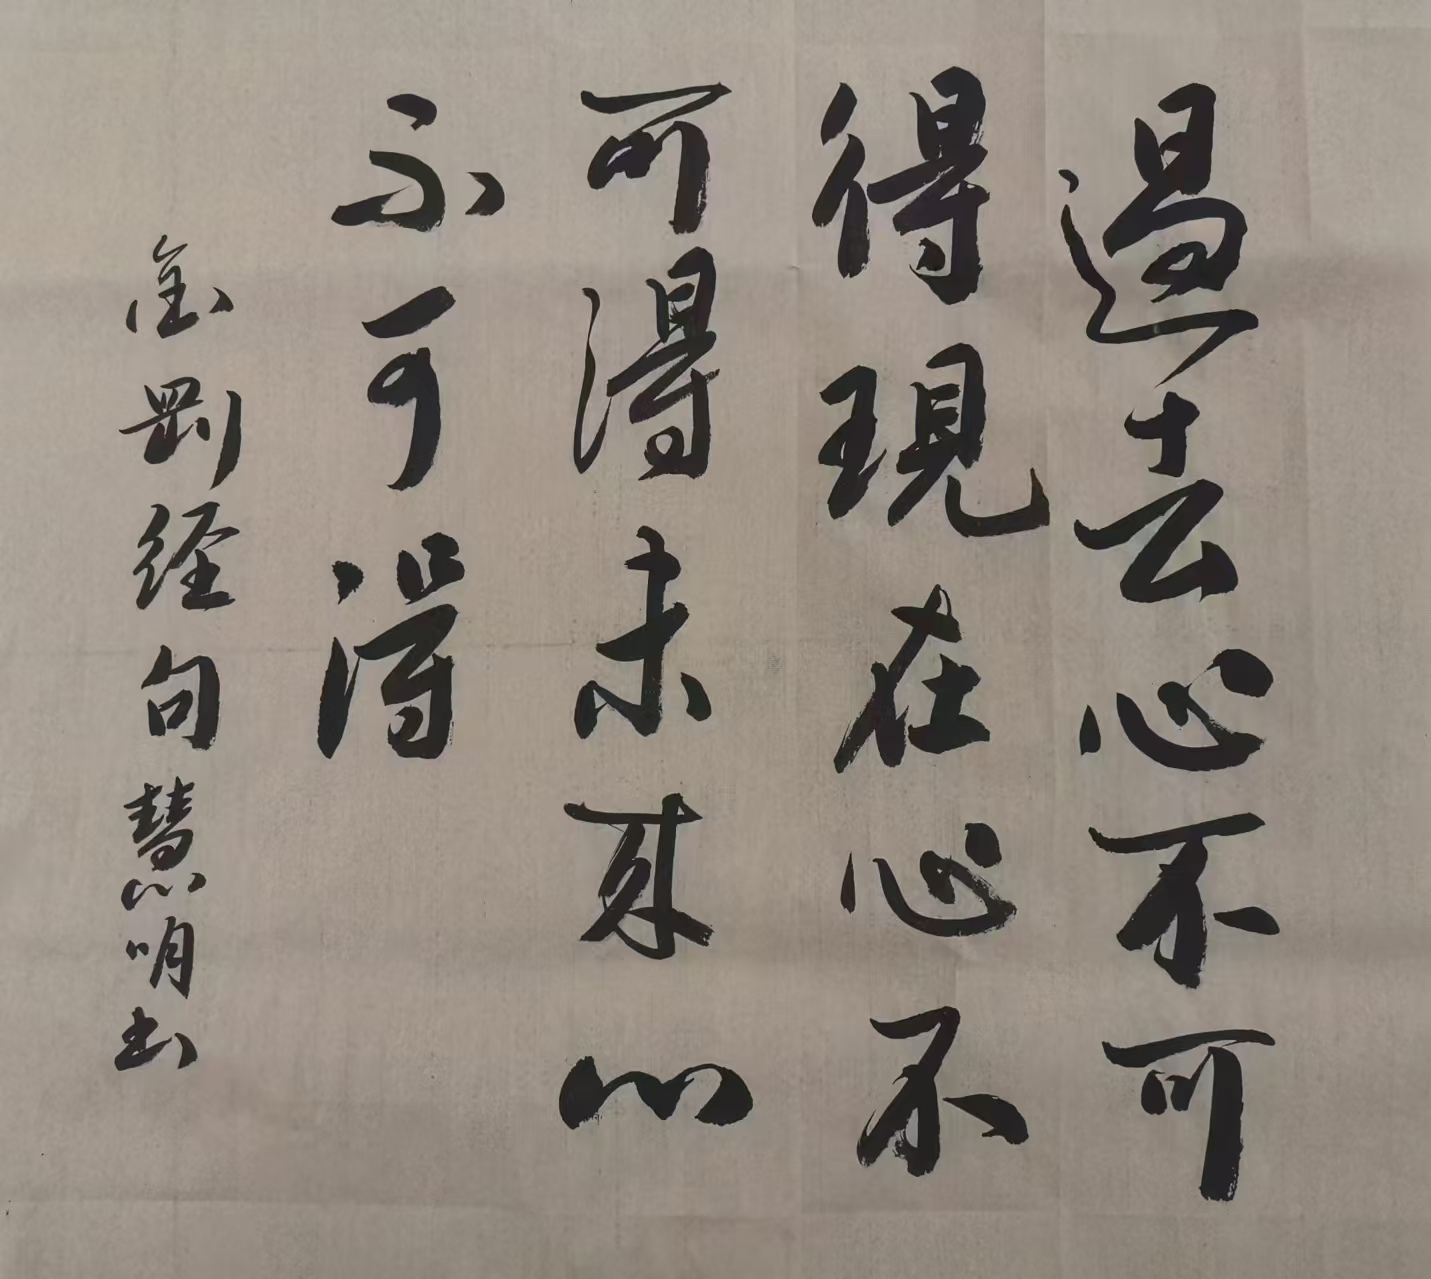 過去心不可
得現在心不
可得未来心
不可得
金剛经句慧明书